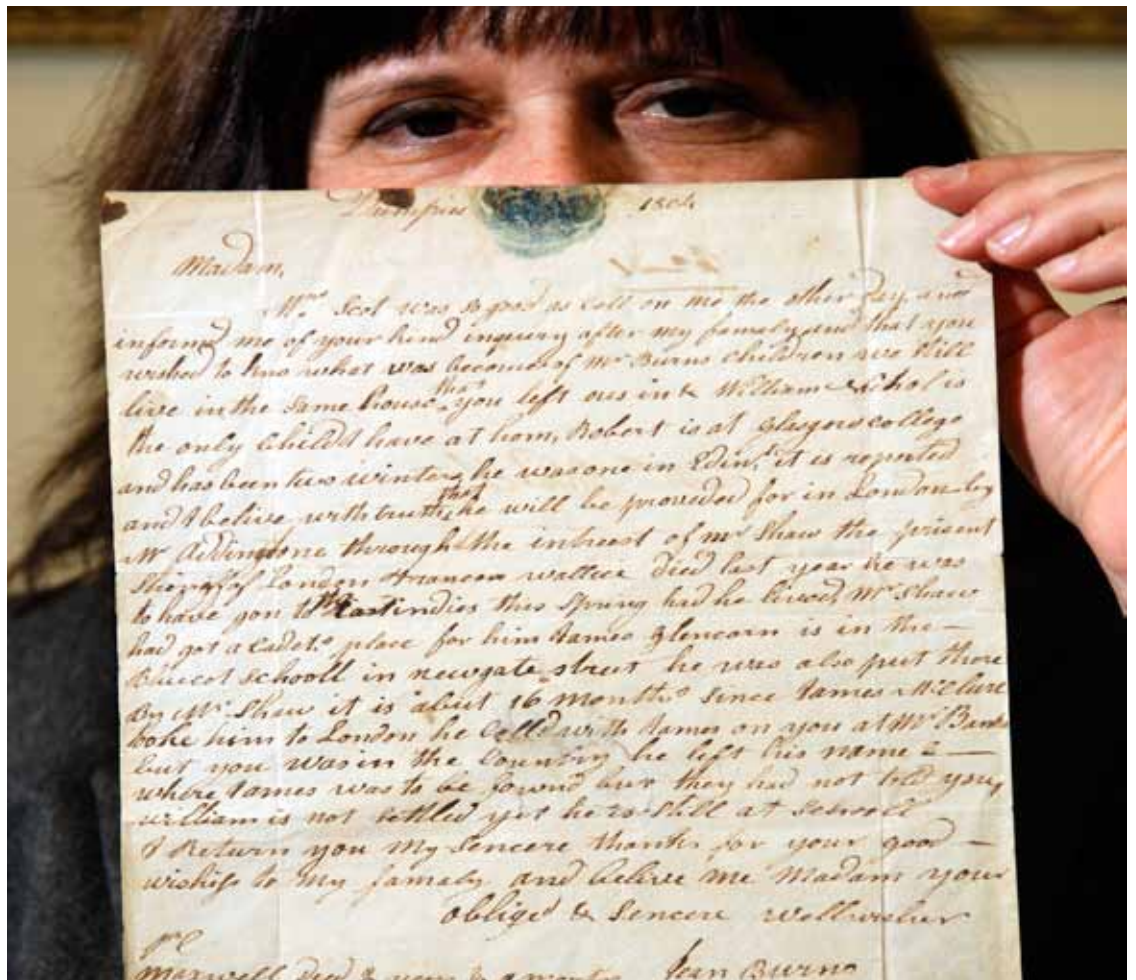 Dumfries 1804
Madam,
Mrs Scot was so good as call on me the other day, and
informd me of your kind inquiry after my famaly and that you
wished to kno what was become of Mr Burns children we still
live in the same house that you left ous in & William Nichol is
the only child I have at hom, Robert is at Glasgow college
and has been two winters he was one in Edinr it is reported
and I belive with truth that he will be provided for in London by
Mr Addingtone through the intrest of mr Shaw the present
of London wallace died last year he was
to have gon to the East indies this spring had he lived, Mr Shaw
had got a Cadets place for him James Glencorn is in the —
Bluecot schooll in newgate street he was also put there
By Mr Shaw it is abut 16 months since James McClure
tooke him to London he calld with James on you at Mr
but you was in the Country he left his name & —
where James was to be found but they had not told you,
william is not settled yet he is still at schooll
I Return you my sencere thanks for your good —
wishes to my famaly and belive me Madam your
obliged & sencere wellwisher
Maxwell died 2 years & months Jean Burns